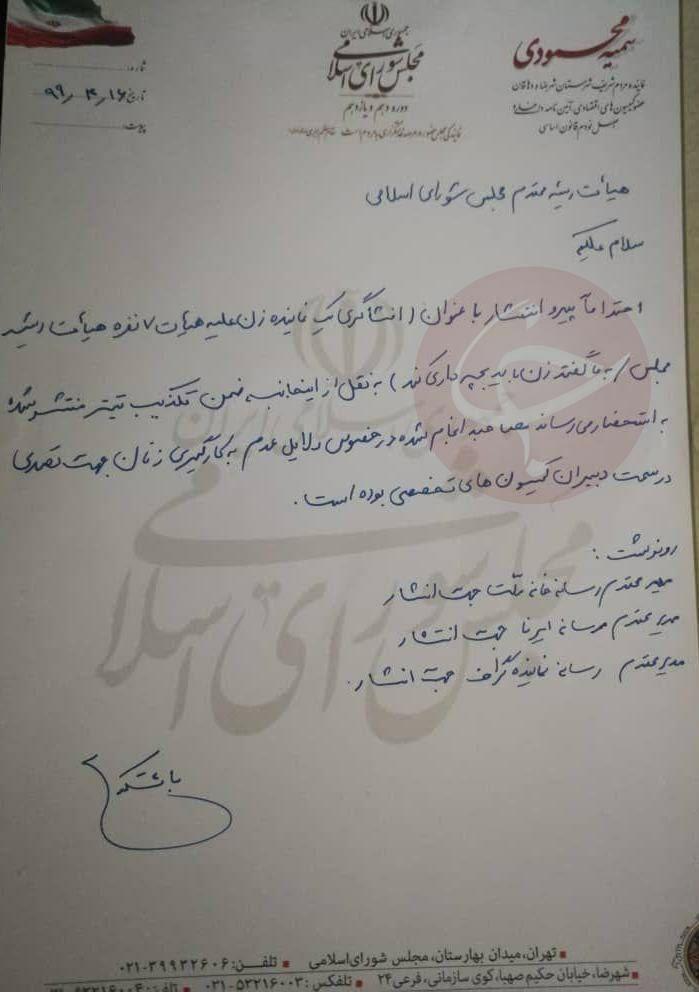 جمهوری اسلامی ایران
مجلس شورای اسلامی
دوره دهم و یازدهم
سمیه محمودی
نماینده مردم شریف شهرستان شهرضا و دهاقان
عضو کمیسیون های اقتصادی، آئین نامه داخلی و
اصل نودم قانون اساسی
شماره:
تاریخ: ۹۹/۴/۱۶
پیوست:
هیأت رئیسه محترم مجلس شورای اسلامی
سلام علیکم
احتراماً پیرو انتشار با عنوان (افشاگری یک نماینده زن علیه هیأت ۷ نفره هیأت رئیسه
مجلس / به ما گفتند زن باید بچه داری کند) به نقل از اینجانب ضمن تکذیب تیتر منتشر شده
به استحضار می رساند مصاحبه انجام شده در خصوص دلایل عدم به کارگیری زنان جهت تصدی
در سمت دبیران کمیسیون های تخصصی بوده است.
رونوشت:
مدیر محترم رسانه خانه ملت جهت انتشار
مدیر محترم رسانه ایرنا جهت انتشار
مدیر محترم رسانه نماینده گراف جهت انتشار.
باتشکر
جمهوری اسلامی ایران
مجلس شورای اسلامی
تهران، میدان بهارستان، مجلس شورای اسلامی ▪ تلفن: ۳۹۹۳۲۶۰۶-۰۲۱
شهرضا، خیابان حکیم صهبا، کوی سازمانی، فرعی ۲۴ ▪ تلفکس: ۵۳۲۱۶۰۰۳-۰۳۱